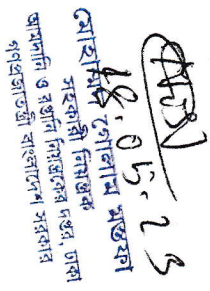 18.05.23
মোহাম্মদ গোলাম মওলা
সহকারী নিয়ন্ত্রক
আমদানি ও রপ্তানি নিয়ন্ত্রকের দপ্তর, ঢাকা
গণপ্রজাতন্ত্রী বাংলাদেশ সরকার